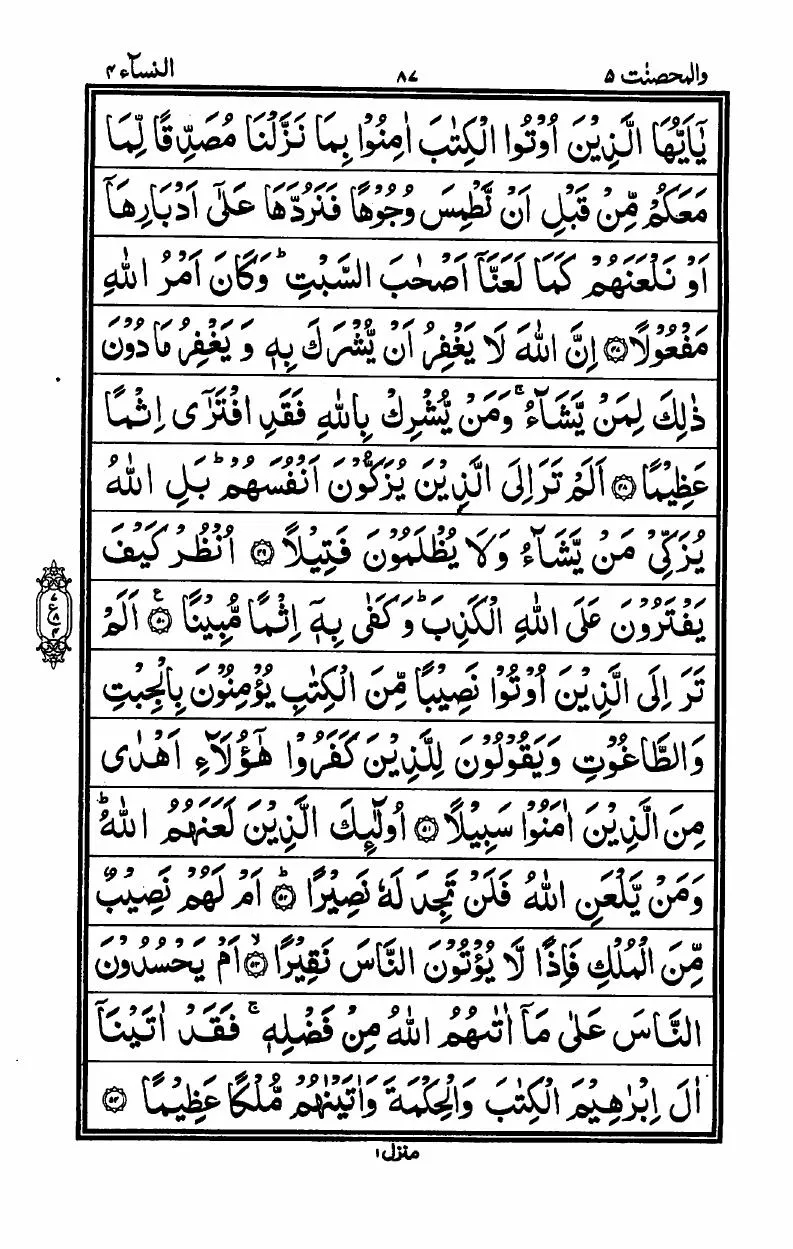 والمحصنت ۵ ۸۷ النسآء ۴
يٰۤاَيُّهَا الَّذِيْنَ اُوْتُوا الْكِتٰبَ اٰمِنُوْا بِمَا نَزَّلْنَا مُصَدِّقًا لِّمَا
مَعَكُمْ مِّنْ قَبْلِ اَنْ نَّطْمِسَ وُجُوْهًا فَنَرُدَّهَا عَلٰۤى اَدْبَارِهَاۤ
اَوْ نَلْعَنَهُمْ كَمَا لَعَنَّاۤ اَصْحٰبَ السَّبْتِ ؕ وَكَانَ اَمْرُ اللّٰهِ
مَفْعُوْلًا ۝۴۷ اِنَّ اللّٰهَ لَا يَغْفِرُ اَنْ يُّشْرَكَ بِهٖ وَ يَغْفِرُ مَا دُوْنَ
ذٰلِكَ لِمَنْ يَّشَآءُ ۚ وَمَنْ يُّشْرِكْ بِاللّٰهِ فَقَدِ افْتَرٰۤى اِثْمًا
عَظِيْمًا ۝۴۸ اَلَمْ تَرَ اِلَى الَّذِيْنَ يُزَكُّوْنَ اَنْفُسَهُمْ ؕ بَلِ اللّٰهُ
يُزَكِّيْ مَنْ يَّشَآءُ وَلَا يُظْلَمُوْنَ فَتِيْلًا ۝۴۹ اُنْظُرْ كَيْفَ
يَفْتَرُوْنَ عَلَى اللّٰهِ الْكَذِبَ ؕ وَكَفٰى بِهٖۤ اِثْمًا مُّبِيْنًا ۝۵۰ ع اَلَمْ
تَرَ اِلَى الَّذِيْنَ اُوْتُوْا نَصِيْبًا مِّنَ الْكِتٰبِ يُؤْمِنُوْنَ بِالْجِبْتِ
وَالطَّاغُوْتِ وَيَقُوْلُوْنَ لِلَّذِيْنَ كَفَرُوْا هٰۤؤُلَآءِ اَهْدٰى
مِنَ الَّذِيْنَ اٰمَنُوْا سَبِيْلًا ۝۵۱ اُولٰٓئِكَ الَّذِيْنَ لَعَنَهُمُ اللّٰهُ ؕ
وَمَنْ يَّلْعَنِ اللّٰهُ فَلَنْ تَجِدَ لَهٗ نَصِيْرًا ۝۵۲ ؕ اَمْ لَهُمْ نَصِيْبٌ
مِّنَ الْمُلْكِ فَاِذًا لَّا يُؤْتُوْنَ النَّاسَ نَقِيْرًا ۝۵۳ ۙ اَمْ يَحْسُدُوْنَ
النَّاسَ عَلٰى مَاۤ اٰتٰىهُمُ اللّٰهُ مِنْ فَضْلِهٖ ۚ فَقَدْ اٰتَيْنَاۤ
اٰلَ اِبْرٰهِيْمَ الْكِتٰبَ وَالْحِكْمَةَ وَاٰتَيْنٰهُمْ مُّلْكًا عَظِيْمًا ۝۵۴
منزل ۱